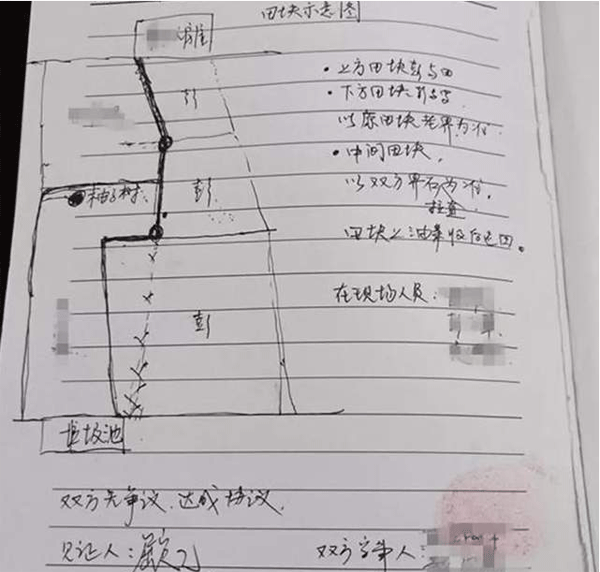 田块示意图
彭
·上方田块彭与田
·下方田块
以原田块老界为准
·中间田块,
彭
柚子树
以双方界石为准,
田块上油菜收后退田。
在现场人员:
彭
垃圾池
双方无争议,达成协议,
见证人:
双方当事人: